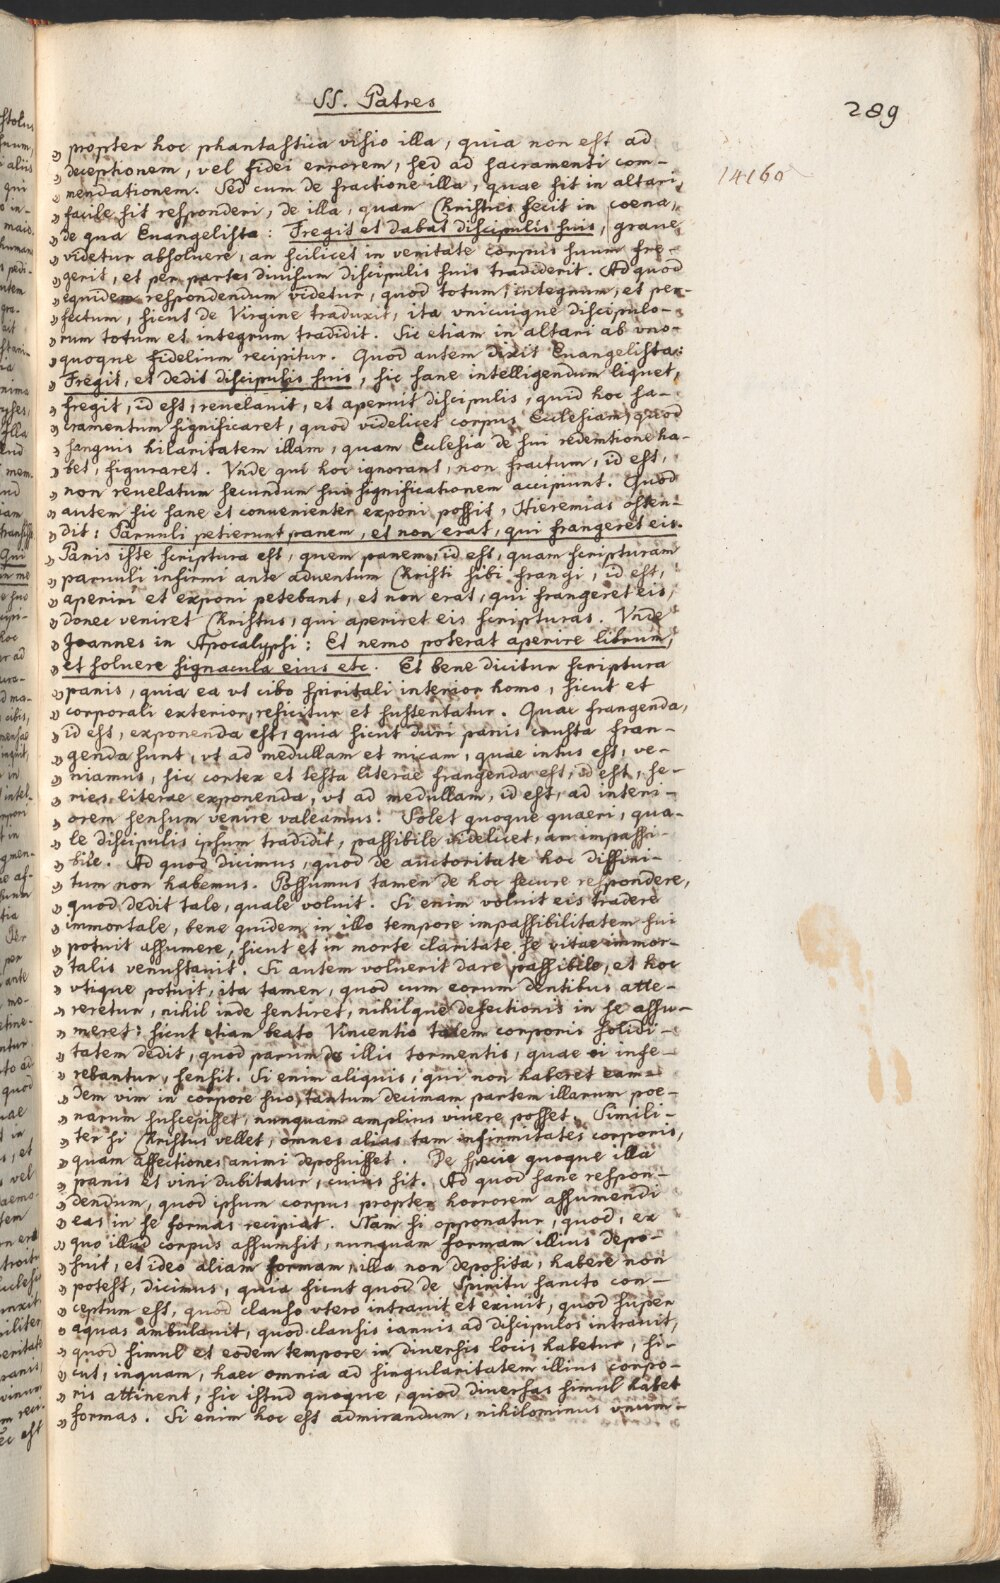 SS. Patres
289
14160
„ propter hoc phantastica visio illa, quia non est ad
„ deceptionem, vel fidei errorem, sed ad sacramenti com-
„ mendationem. Sed cum de fractione illa, quae fit in altari,
„ facile sit responderi, de illa, quam Christus fecit in coena,
„ de qua Euangelista: Fregit et dabat discipulis suis, graue
„ videtur absoluere, an scilicet in veritate corpus suum fre-
„ gerit, et per partes diuisum discipulis suis tradiderit. Ad quod
„ equidem respondendum videtur, quod totum, integrum, et per-
„ fectum, sicut de Virgine traduxit, ita vnicuique discipulo-
„ rum totum et integrum tradidit. Sic etiam in altari ab vno-
„ quoque fidelium recipitur. Quod autem dixit Euangelista:
„ Fregit, et dedit discipulis suis, sic sane intelligendum liquet,
„ fregit, id est, reuelauit, et aperuit discipulis, quid hoc sa-
„ cramentum significaret, quod videlicet corpus Ecclesiam, quod
„ sanguis hilaritatem illam, quam Ecclesia de sui redemtione ha-
„ bet, figuraret. Vnde qui hoc ignorant, non fractum, id est,
„ non reuelatum secundum sui significationem accipiunt. Quod
„ autem sic sane et conuenienter exponi possit, Hieremias osten-
„ dit: Paruuli petierunt panem, et non erat, qui frangeret eis.
„ Panis iste scriptura est, quem panem, id est, quam scripturam
„ paruuli infirmi ante aduentum Christi sibi frangi, id est,
„ aperiri et exponi petebant, et non erat, qui frangeret eis,
„ donec veniret Christus, qui aperiret eis scripturas. Vnde
„ Joannes in Apocalypsi: Et nemo poterat aperire librum,
„ et soluere signacula eius etc. Et bene dicitur scriptura
„ panis, quia ea vt cibo spiritali interior homo, sicut et
„ corporali exterior, reficitur et sustentatur. Quae frangenda,
„ id est, exponenda est, quia sicut duri panis crusta fran-
„ genda sunt, vt ad medullam et micam, quae intus est, ve-
„ niamus, sic cortex et testa literae frangenda est, id est, se-
„ ries literae exponenda, vt ad medullam, id est, ad interi-
„ orem sensum venire valeamus. Solet quoque quaeri, qua-
„ le discipulis ipsum tradidit, passibile videlicet, an impassi-
„ bile. Ad quod dicimus, quod de auctoritate hoc diffini-
„ tum non habemus. Possumus tamen de hoc secure respondere,
„ quod dedit tale, quale voluit. Si enim voluit eis tradere
„ immortale, bene quidem in illo tempore impassibilitatem sui
„ potuit assumere, sicut et in morte claritate se vitae immor-
„ talis venustauit. Si autem voluerit dare passibile, et hoc
„ vtique potuit, ita tamen, quod cum eorum dentibus atte-
„ reretur, nihil inde sentiret, nihilque defectionis in se assu-
„ meret: sicut etiam beato Vincentio talem corporis solidi-
„ tatem dedit, quod parum de illis tormentis, quae ei infe-
„ rebantur, sensit. Si enim aliquis, qui non haberet eam-
„ dem vim in corpore suo, tantum decimam partem illarum poe-
„ narum suscepisset, nunquam amplius viuere posset. Simili-
„ ter si Christus vellet, omnes alias tam infirmitates corporis,
„ quam affectiones animi deposuisset. De specie quoque illa
„ panis et vini dubitatur, cuius sit. Ad quod sane respon-
„ dendum, quod ipsum corpus propter horrorem assumendi
„ eas in se formas recipiat. Nam si opponatur, quod, ex
„ quo illud corpus assumsit, nunquam formam illius depo-
„ suit, et ideo aliam formam, illa non deposita, habere non
„ potest, dicimus, quia sicut quod de Spiritu sancto con-
„ ceptum est, quod clauso vtero intrauit et exiuit, quod super
„ aquas ambulauit, quod clausis ianuis ad discipulos intrauit,
„ quod simul et eodem tempore in diuersis locis habetur, si-
„ cut, inquam, haec omnia ad singularitatem illius corpo-
„ ris attinent, sic istud quoque, quod diuersas simul habet
„ formas. Si enim hoc est admirandum, nihilominus vnum-